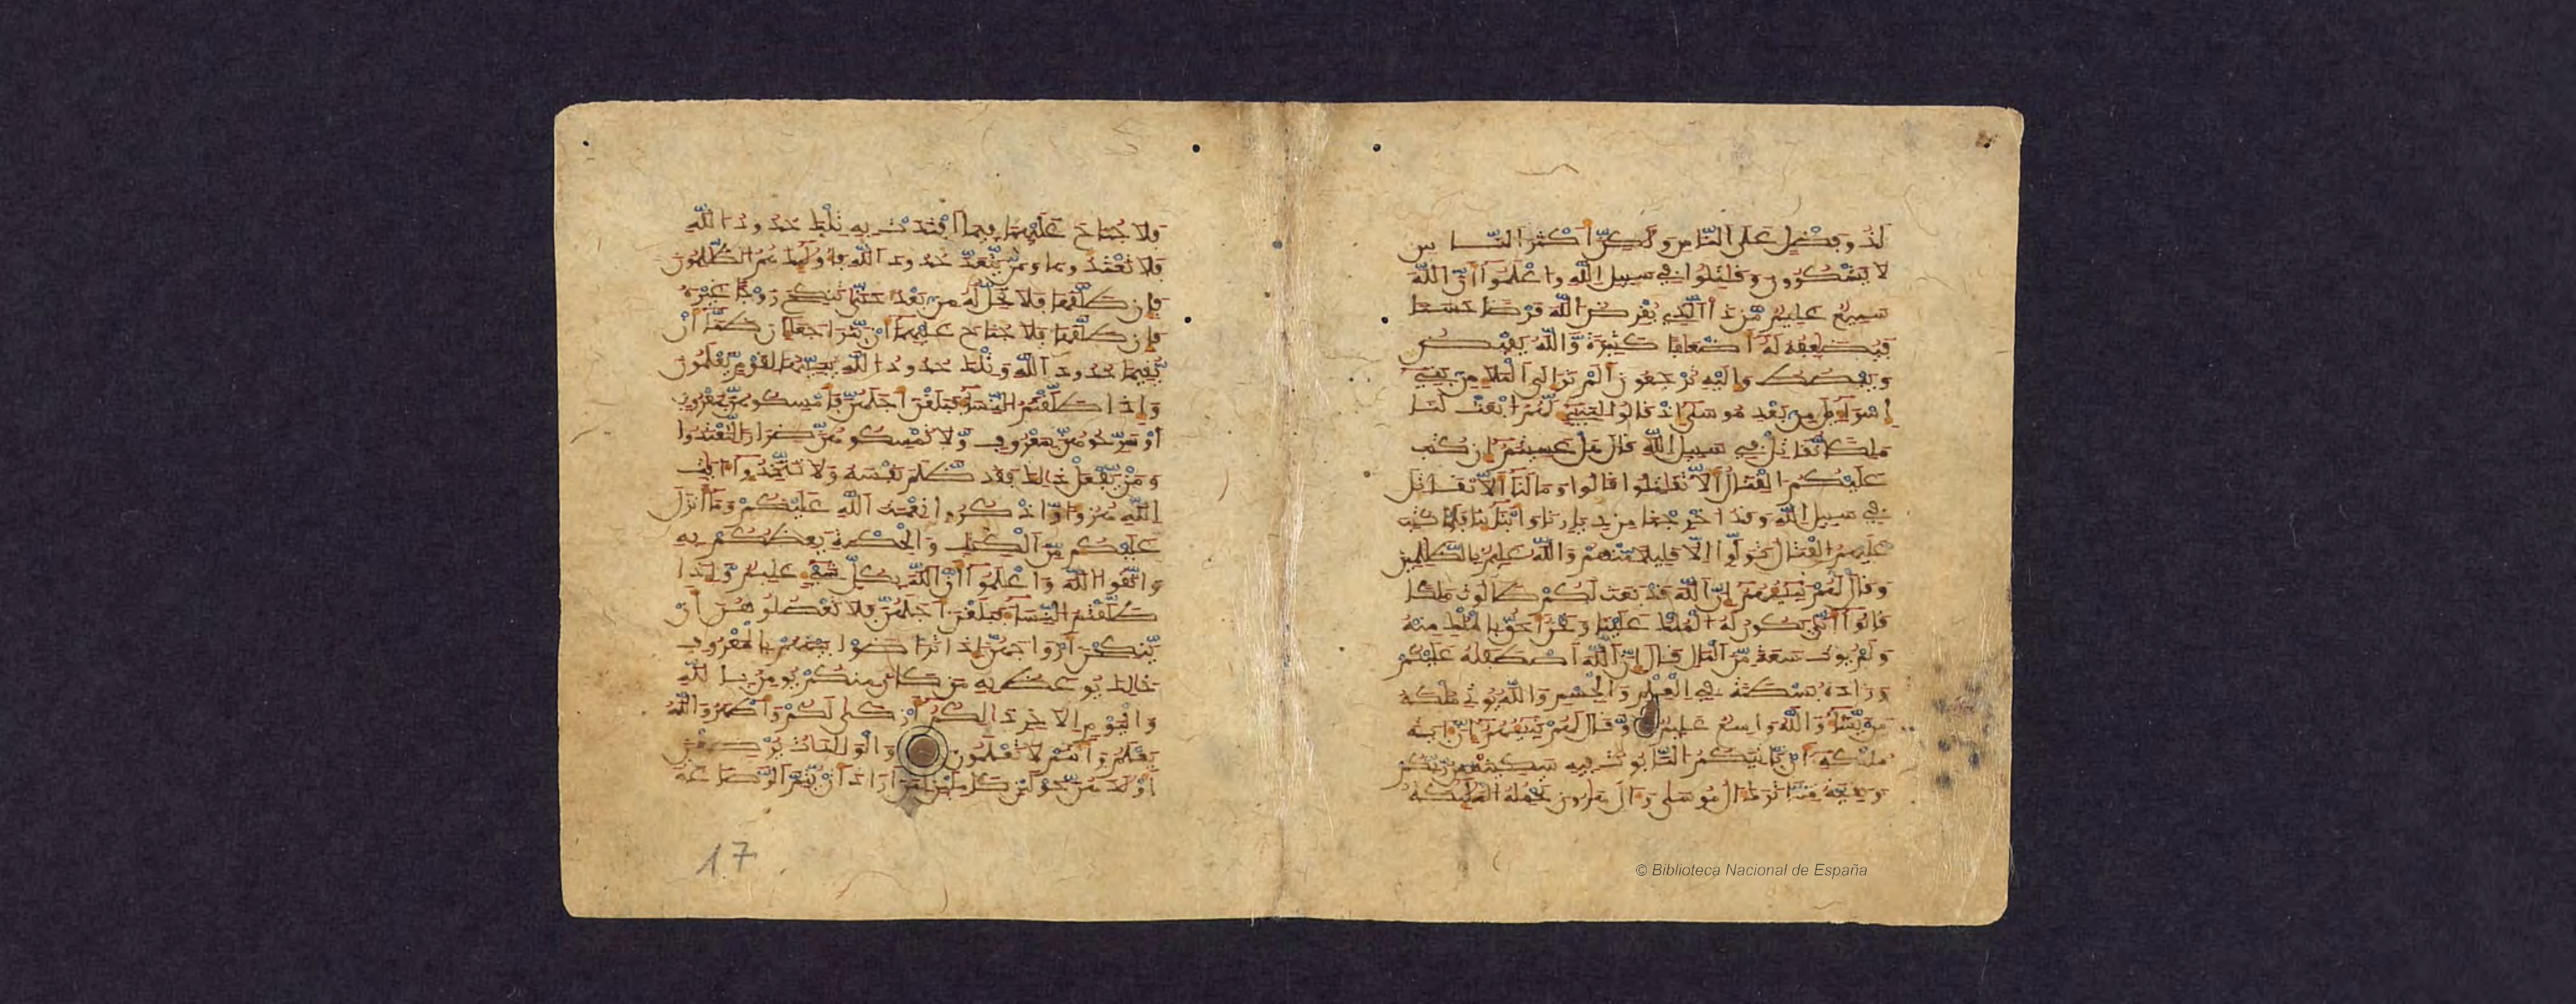 لذو فضل على الناس ولكن اكثر الناس
لا يشكرون وقتلوا في سبيل الله واعلموا ان الله
سميع عليم من ذا الذي يقرض الله قرضا حسنا
فيضعفه له اضعافا كثيرة والله يقبض
ويبصط واليه ترجعون الم تر الى الملا من بني
اسراءيل من بعد موسى اذ قالوا لنبيء لهم ابعث لنا
ملكا نقاتل في سبيل الله قال هل عسيتم ان كتب
عليكم القتال الا تقتلوا قالوا وما لنا الا نقاتل
في سبيل الله وقد اخرجنا من ديارنا وابناينا فلما كتب
عليهم القتال تولوا الا قليلا منهم والله عليم بالظلمين
وقال لهم نبيهم ان الله قد بعث لكم طالوت ملكا
قالوا انى يكون له الملك علينا ونحن احق بالملك منه
ولم يوت سعة من المال قال ان الله اصطفيه عليكم
وزاده بسطة في العلم والجسم والله يوتي ملكه
من يشاء والله واسع عليم وقال لهم نبيهم ان اية
ملكه ان ياتيكم التابوت فيه سكينة من ربكم
وبقية مما ترك ال موسى وال هرون تحمله المليكة
فلا جناح عليهما فيما افتدت به تلك حدود الله
فلا تعتدوها ومن يتعد حدود الله فاوليك هم الظلمون
فان طلقها فلا تحل له من بعد حتى تنكح زوجا غيره
فان طلقها فلا جناح عليهما ان يتراجعا ان ظنا ان
يقيما حدود الله وتلك حدود الله يبينها لقوم يعلمون
واذا طلقتم النساء فبلغن اجلهن فامسكوهن بمعروف
او سرحوهن بمعروف ولا تمسكوهن ضرارا لتعتدوا
ومن يفعل ذلك فقد ظلم نفسه ولا تتخذوا ايت
الله هزوا واذكروا نعمت الله عليكم وما انزل
عليكم من الكتب والحكمة يعظكم به
واتقوا الله واعلموا ان الله بكل شيء عليم واذا
طلقتم النساء فبلغن اجلهن فلا تعضلوهن ان
ينكحن ازواجهن اذا ترضوا بينهم بالمعروف
ذلك يوعظ به من كان منكم يومن بالله
واليوم الاخر ذلكم ازكى لكم واطهر والله
يعلم وانتم لا تعلمون والولدات يرضعن
اولدهن حولين كاملين لمن اراد ان يتم الرضاعة
17
© Biblioteca Nacional de España